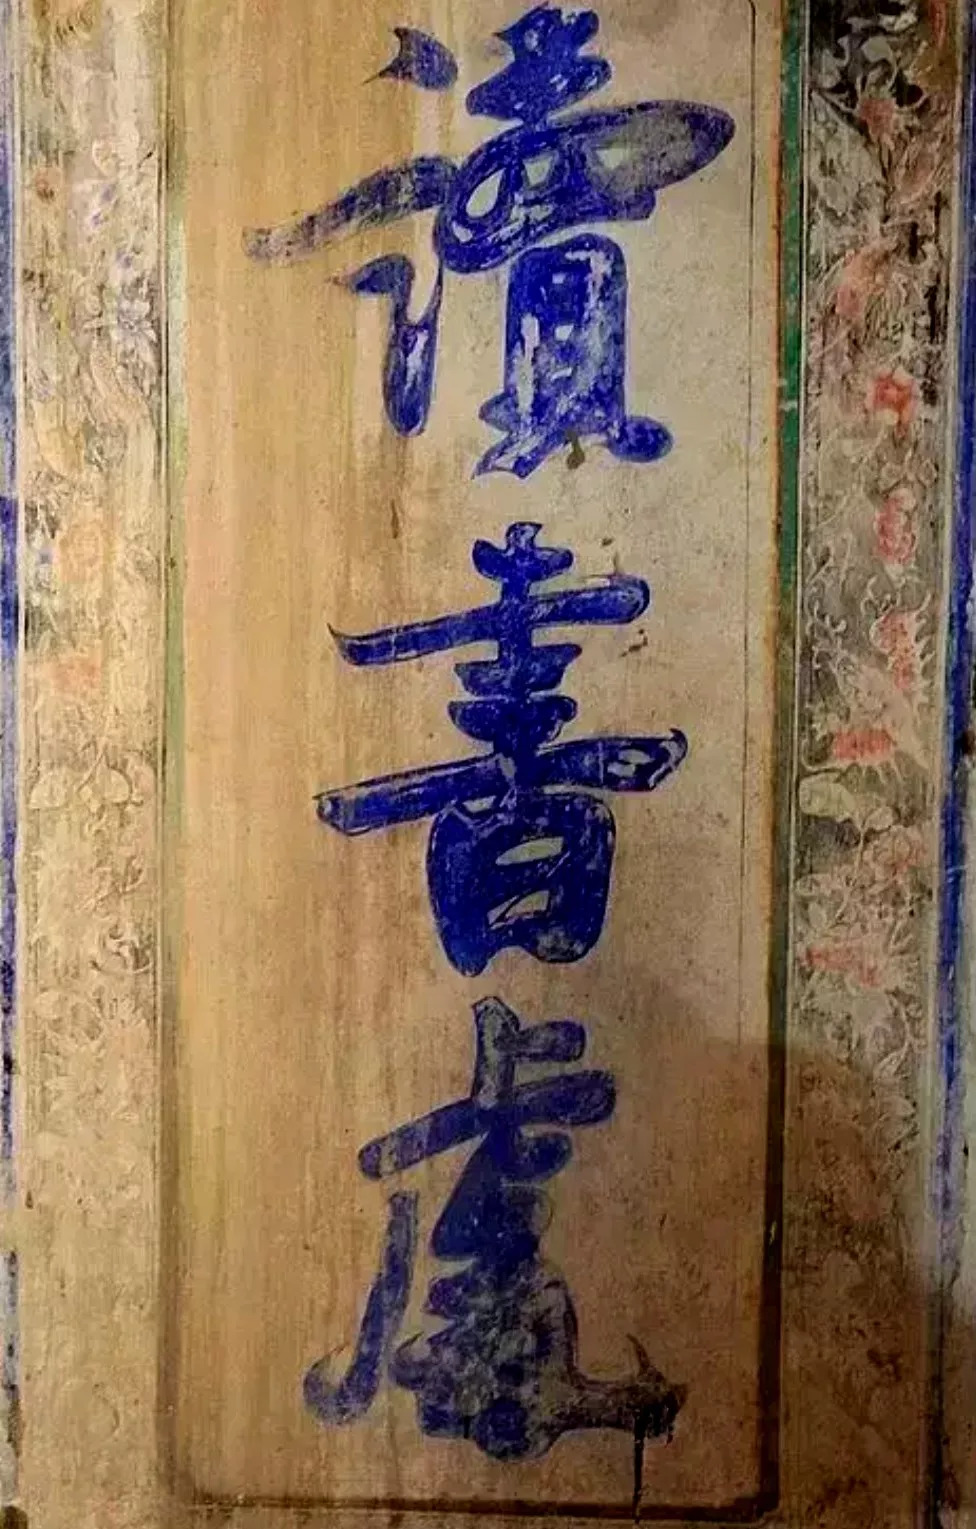 讀書處